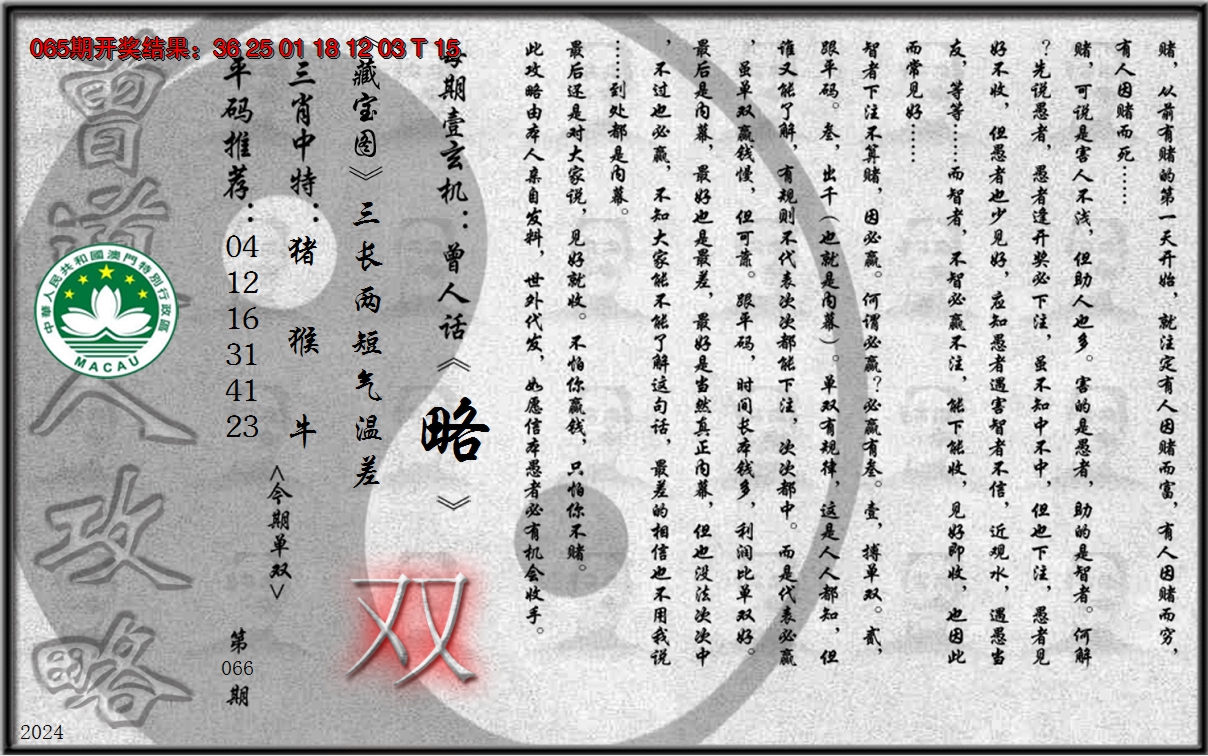 065期开奖结果：36 25 01 18 12 03 T 15
赌，从前有赌的第一天开始，就注定有人因赌而富，有人因赌而穷，
有人因赌而死……
赌，可说是害人不浅，但助人也多。害的是愚者，助的是智者。何解
？先说愚者，愚者逢开奖必下注，虽不知中不中，但也下注，愚者见
好不收，但愚者也少见好，应知愚者遇害智者不信，近观水，遇愚当
友，等等……而智者，不智必赢不注，能下能收，见好即收，也因此
而常见好……
智者下注不算赌，因必赢。何谓必赢？必赢有叁。壹，搏单双。贰，
跟平码。叁，出千（也就是内幕）。单双有规律，这是人人都知，但
谁又能了解，有规则不代表次次都能下注，次次都中。而是代表必赢
，虽单双赢钱慢，但可靠。跟平码，时间长本钱多，利润比单双好。
最后是内幕，最好也是最差，最好是当然真正内幕，但也没法次次中
，不过也必赢，不知大家能不能了解这句话，最差的相信也不用我说
……到处都是内幕。
最后还是对大家说，见好就收。不怕你赢钱，只怕你不赌。
此攻略由本人亲自发料，世外代发，如愿信本愚者必有机会收手。
每期壹玄机：曾人话《略》
《藏宝图》三长两短气温差
双
三肖中特：猪 猴 牛
<今期单双>
平码推荐：04 12 16 31 41 23
第066期
曾道人攻略
中華人民共和國澳門特別行政區
MACAU
2024